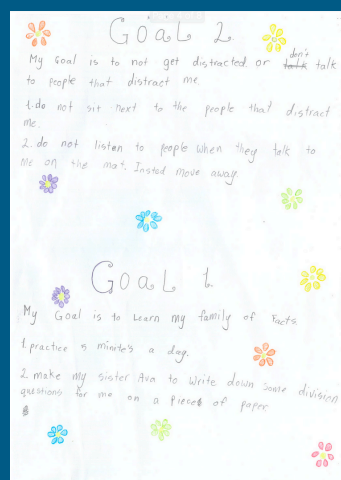 GOAL 2
My Goal is to not get distracted or don't talk
to people that distract me.
1. do not sit next to the people that distract
me.
2. do not listen to people when they talk to
me on the mat. Insted move away.
GOAL 1.
My Goal is to Learn my family of Facts.
1. practice 5 minite's a day.
2 make my sister Ava to write down some division
questions for me on a piece of paper